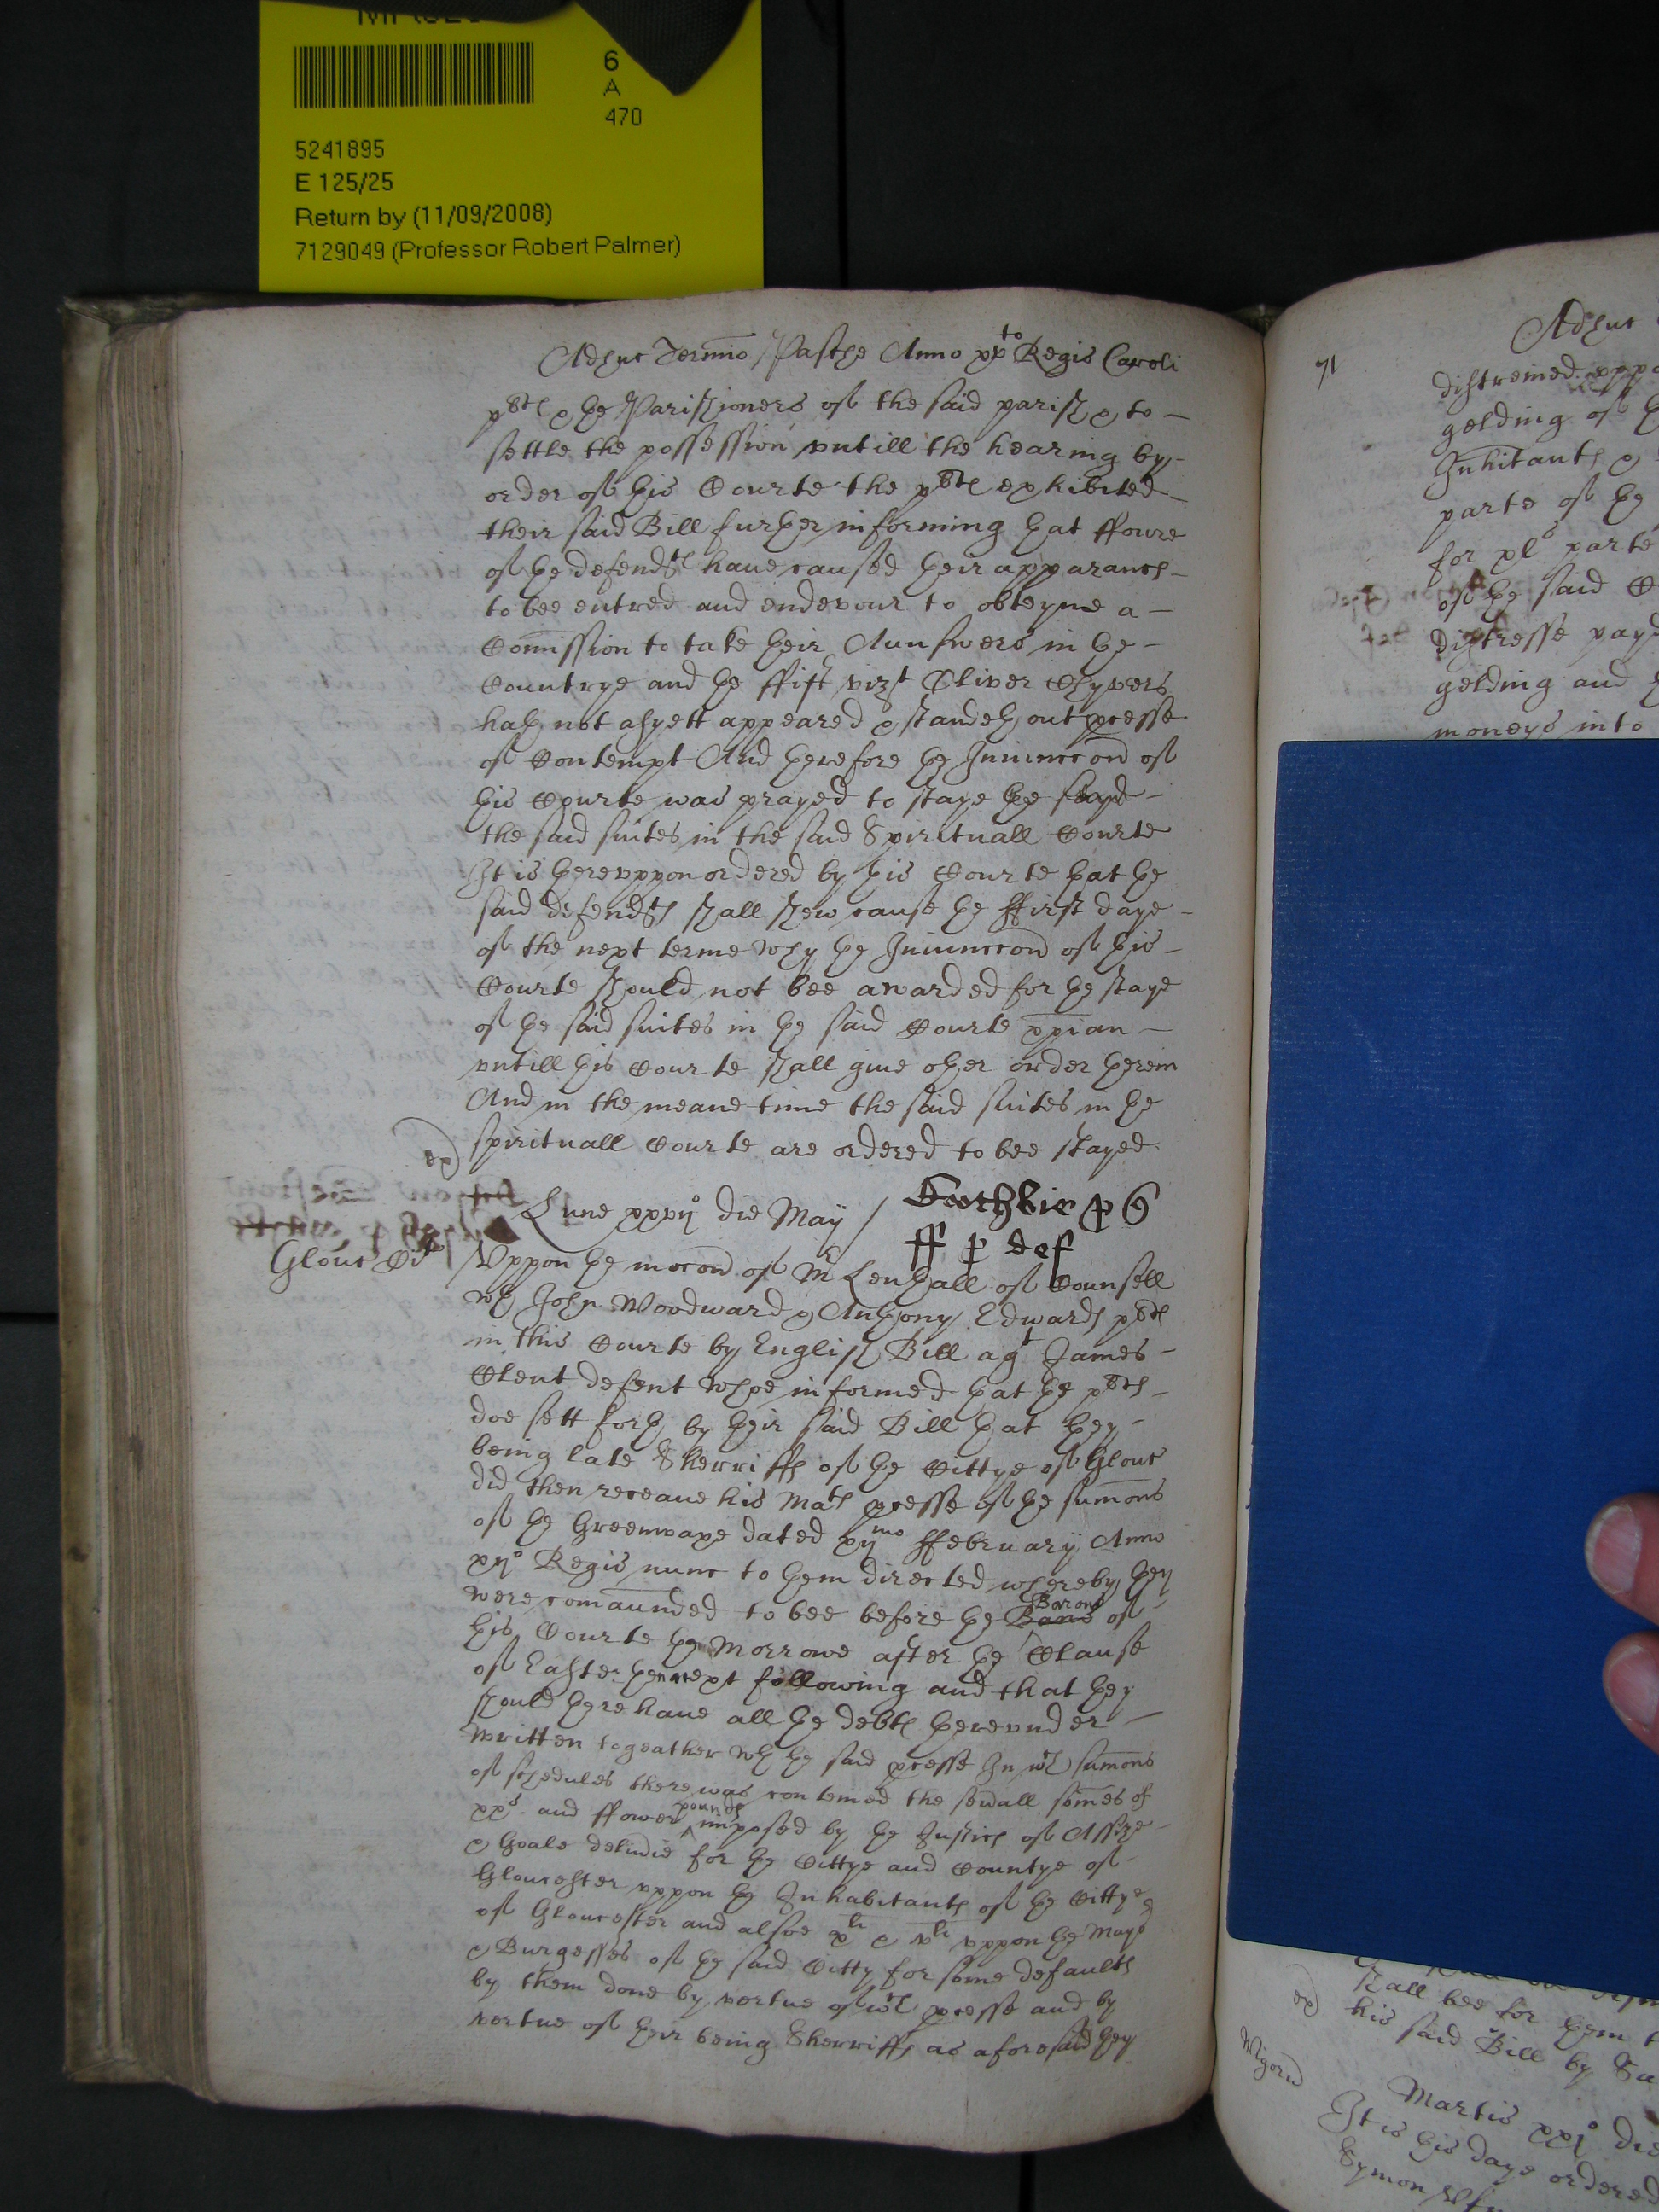 6
A
470
5241895
E 125/25
Return by (11/09/2008)
7129049 (Professor Robert Palmer)
Adhuc Termino Pasche Anno xvto Regis Caroli
pltes & the Parishioners of the said parish & to
settle the possession untill the hearing by
order of this Courte the pltes exhibited
their said Bill further informing that ffowre
of the defendtes have caused their apparances
to bee entred and endevour to obteyne a
Comission to take their Aunswers in the
Countrye and the ffift vizt Oliver Chyvers
hath not asyett appeared & standeth out processe
of Contempt And therefore the Iniunccon of
this Courte was prayed to staye the
the said suites in the said Spirituall Courte
It is thereuppon ordered by this Courte that the
said defendtes shall shew cause the ffirst daye
of the next terme why the Iniunccon of this
Courte should not bee awarded for the staye
of the said suites in the said Courte xpian
untill this Courte shall give other order therein
And in the meane time the said suites in the
spirituall Courte are ordered to bee stayed
ex
Lune die Maij /
ff p def
Glouc Cit
Uppon the mocon of Mr Lenthall of Counsell
wth John Woodward & Anthony Edwards pltes
in this Courte by English Bill agt James
Clent defent whoe informed that the pltes
doe sett forth by their said Bill that they
being late Sherriffs of the Cittye of Glouc
did then receave his Mates processe of the sumons
of the Greenwaxe dated xijmo ffebruarij Anno
xijo Regis nunc to them directed whereby they
were comaunded to bee before the Barons of
this Courte the Morrowe after the Clause
of Easter then next following and that they
should there have all the debtes thereunder
written togeather wth the said processe In wch sumons
of schedules there was conteined the severall somes of
xxs and ffower pounds imposed by the Justices of Assize
& Goale deliverie for the Cittye and Countye of
Gloucester uppon the Inhabitants of the Cittye
of Gloucester and alsoe xli & vli uppon the Mayor
& Burgesses of the said Citty for some defaults
by them done by vertue of wch processe and by
vertue of their being Sherriffs as aforesaid they
71
Adhuc
distreined
gelding of
Inhitants &
parte of the
for xls parte
of the said
distresse payd
gelding and
moneys into
shall bee for them
ex
his said Bill by
Wigorn
Martis xxjo die
It is this daye ordered
Symon